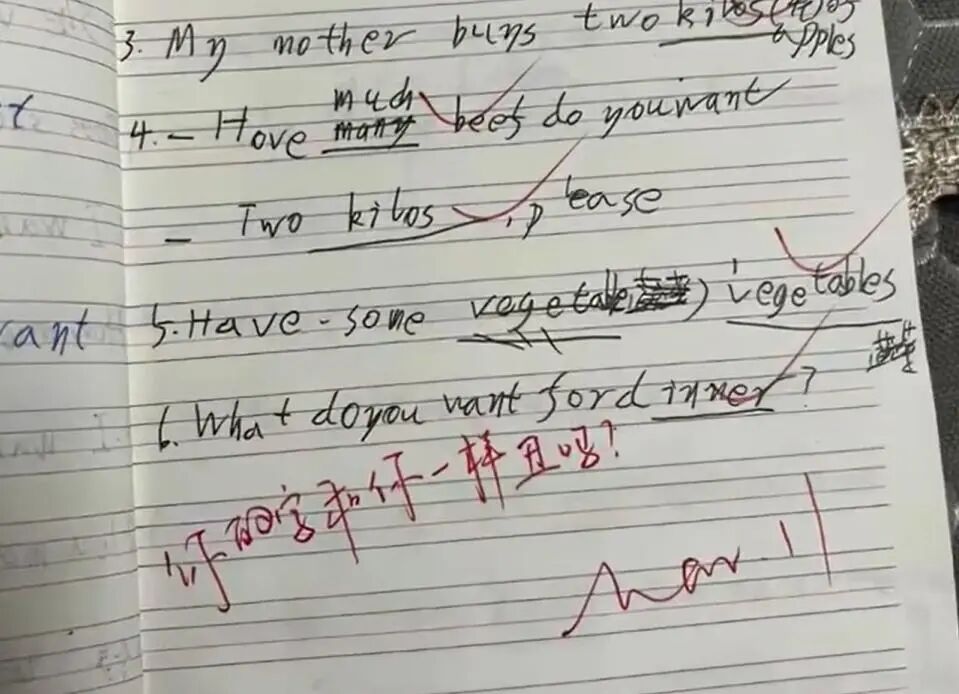 3. My mother buys two kilos (千克) of
apples
much
4. - Hove many beef do you want
- Two kilos , please
5. Have some vegetable) vegetables
6. What do you want for dinner ?
你的字和你一样丑吗?
Mar. 11
ant